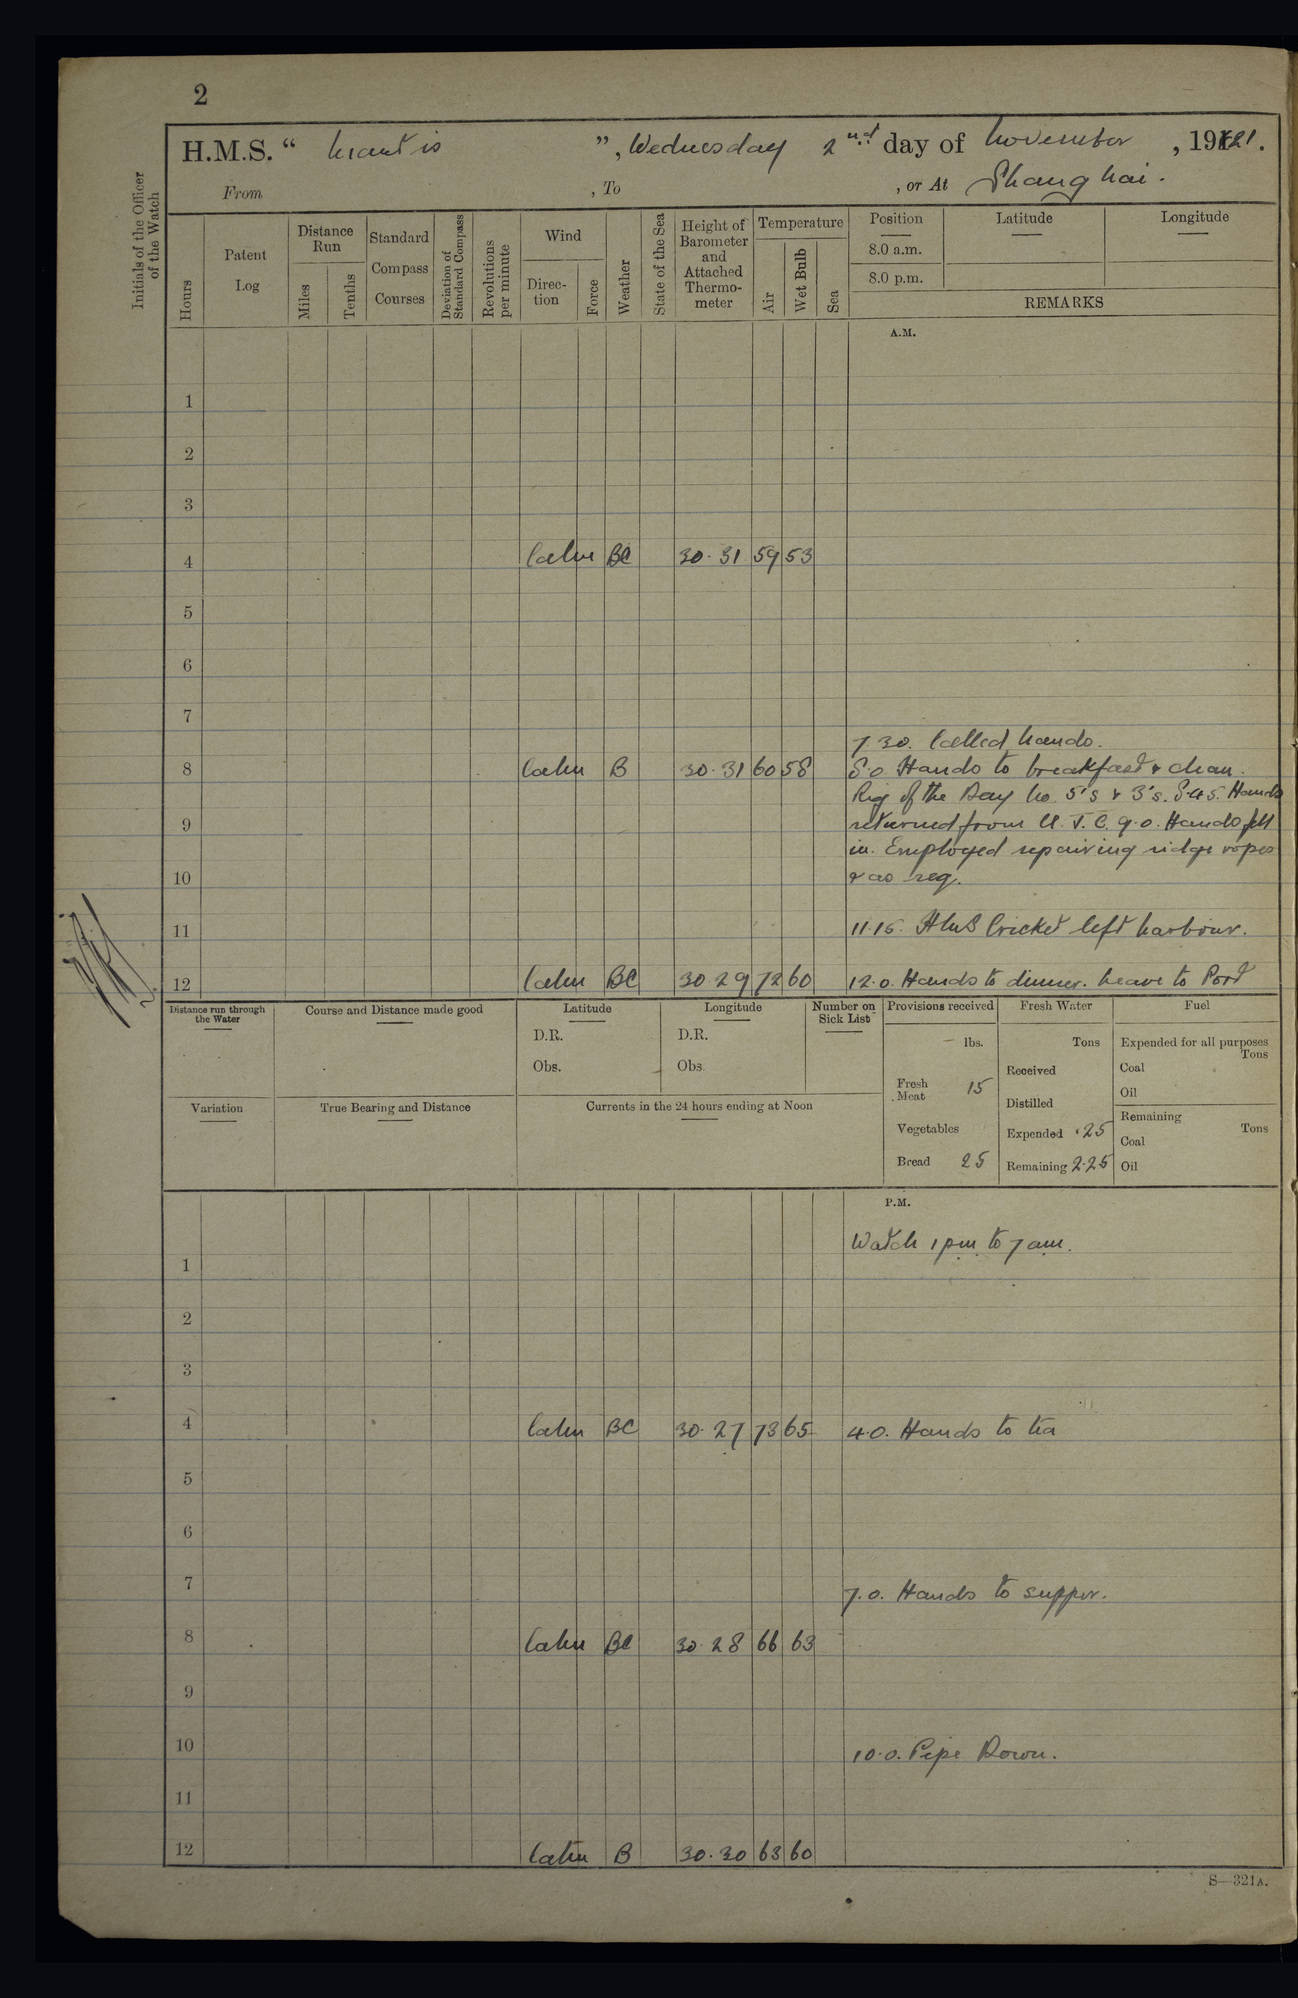 2
H.M.S. “ Mantis ”, Wednesday 2nd day of November , 1921.
From , To , or At Shanghai.
Initials of the Officer of the Watch
Hours
Patent Log
Distance Run
Miles
Tenths
Standard Compass Courses
Deviation of Standard Compass
Revolutions per minute
Wind
Direction
Force
Weather
State of the Sea
Height of Barometer and Attached Thermometer
Temperature
Air
Wet Bulb
Sea
Position
8.0 a.m.
8.0 p.m.
Latitude
Longitude
REMARKS
A.M.
1
2
3
4 Calm BC 30.31 59 53
5
6
7
7.30. Called hands.
8 Calm B 30.31 60 58 8.0 Hands to breakfast & clean.
Rig of the Day No. 5's & 3's. 8.45. Hands
9 returned from U.S.C. 9.0. Hands fell
in. Employed repairing ridge ropes
10 & as req.
11 11.15. HMS Cricket left harbour.
12 Calm BC 30.29 72 60 12.0. Hands to dinner. Leave to Port
Distance run through the Water
Course and Distance made good
Latitude
D.R.
Obs.
Longitude
D.R.
Obs.
Number on Sick List
Provisions received
lbs.
Fresh Meat 15
Vegetables
Bread 25
Fresh Water
Tons
Received
Distilled
Expended .25
Remaining 2.25
Fuel
Expended for all purposes
Tons
Coal
Oil
Remaining
Tons
Coal
Oil
Variation
True Bearing and Distance
Currents in the 24 hours ending at Noon
P.M.
Watch 1 pm to 7 am.
1
2
3
4 Calm BC 30.27 73 65 4.0. Hands to tea
5
6
7 7.0. Hands to supper.
8 Calm BC 30.28 66 63
9
10 10.0. Pipe Down.
11
12 Calm B 30.30 63 60
S—321A.